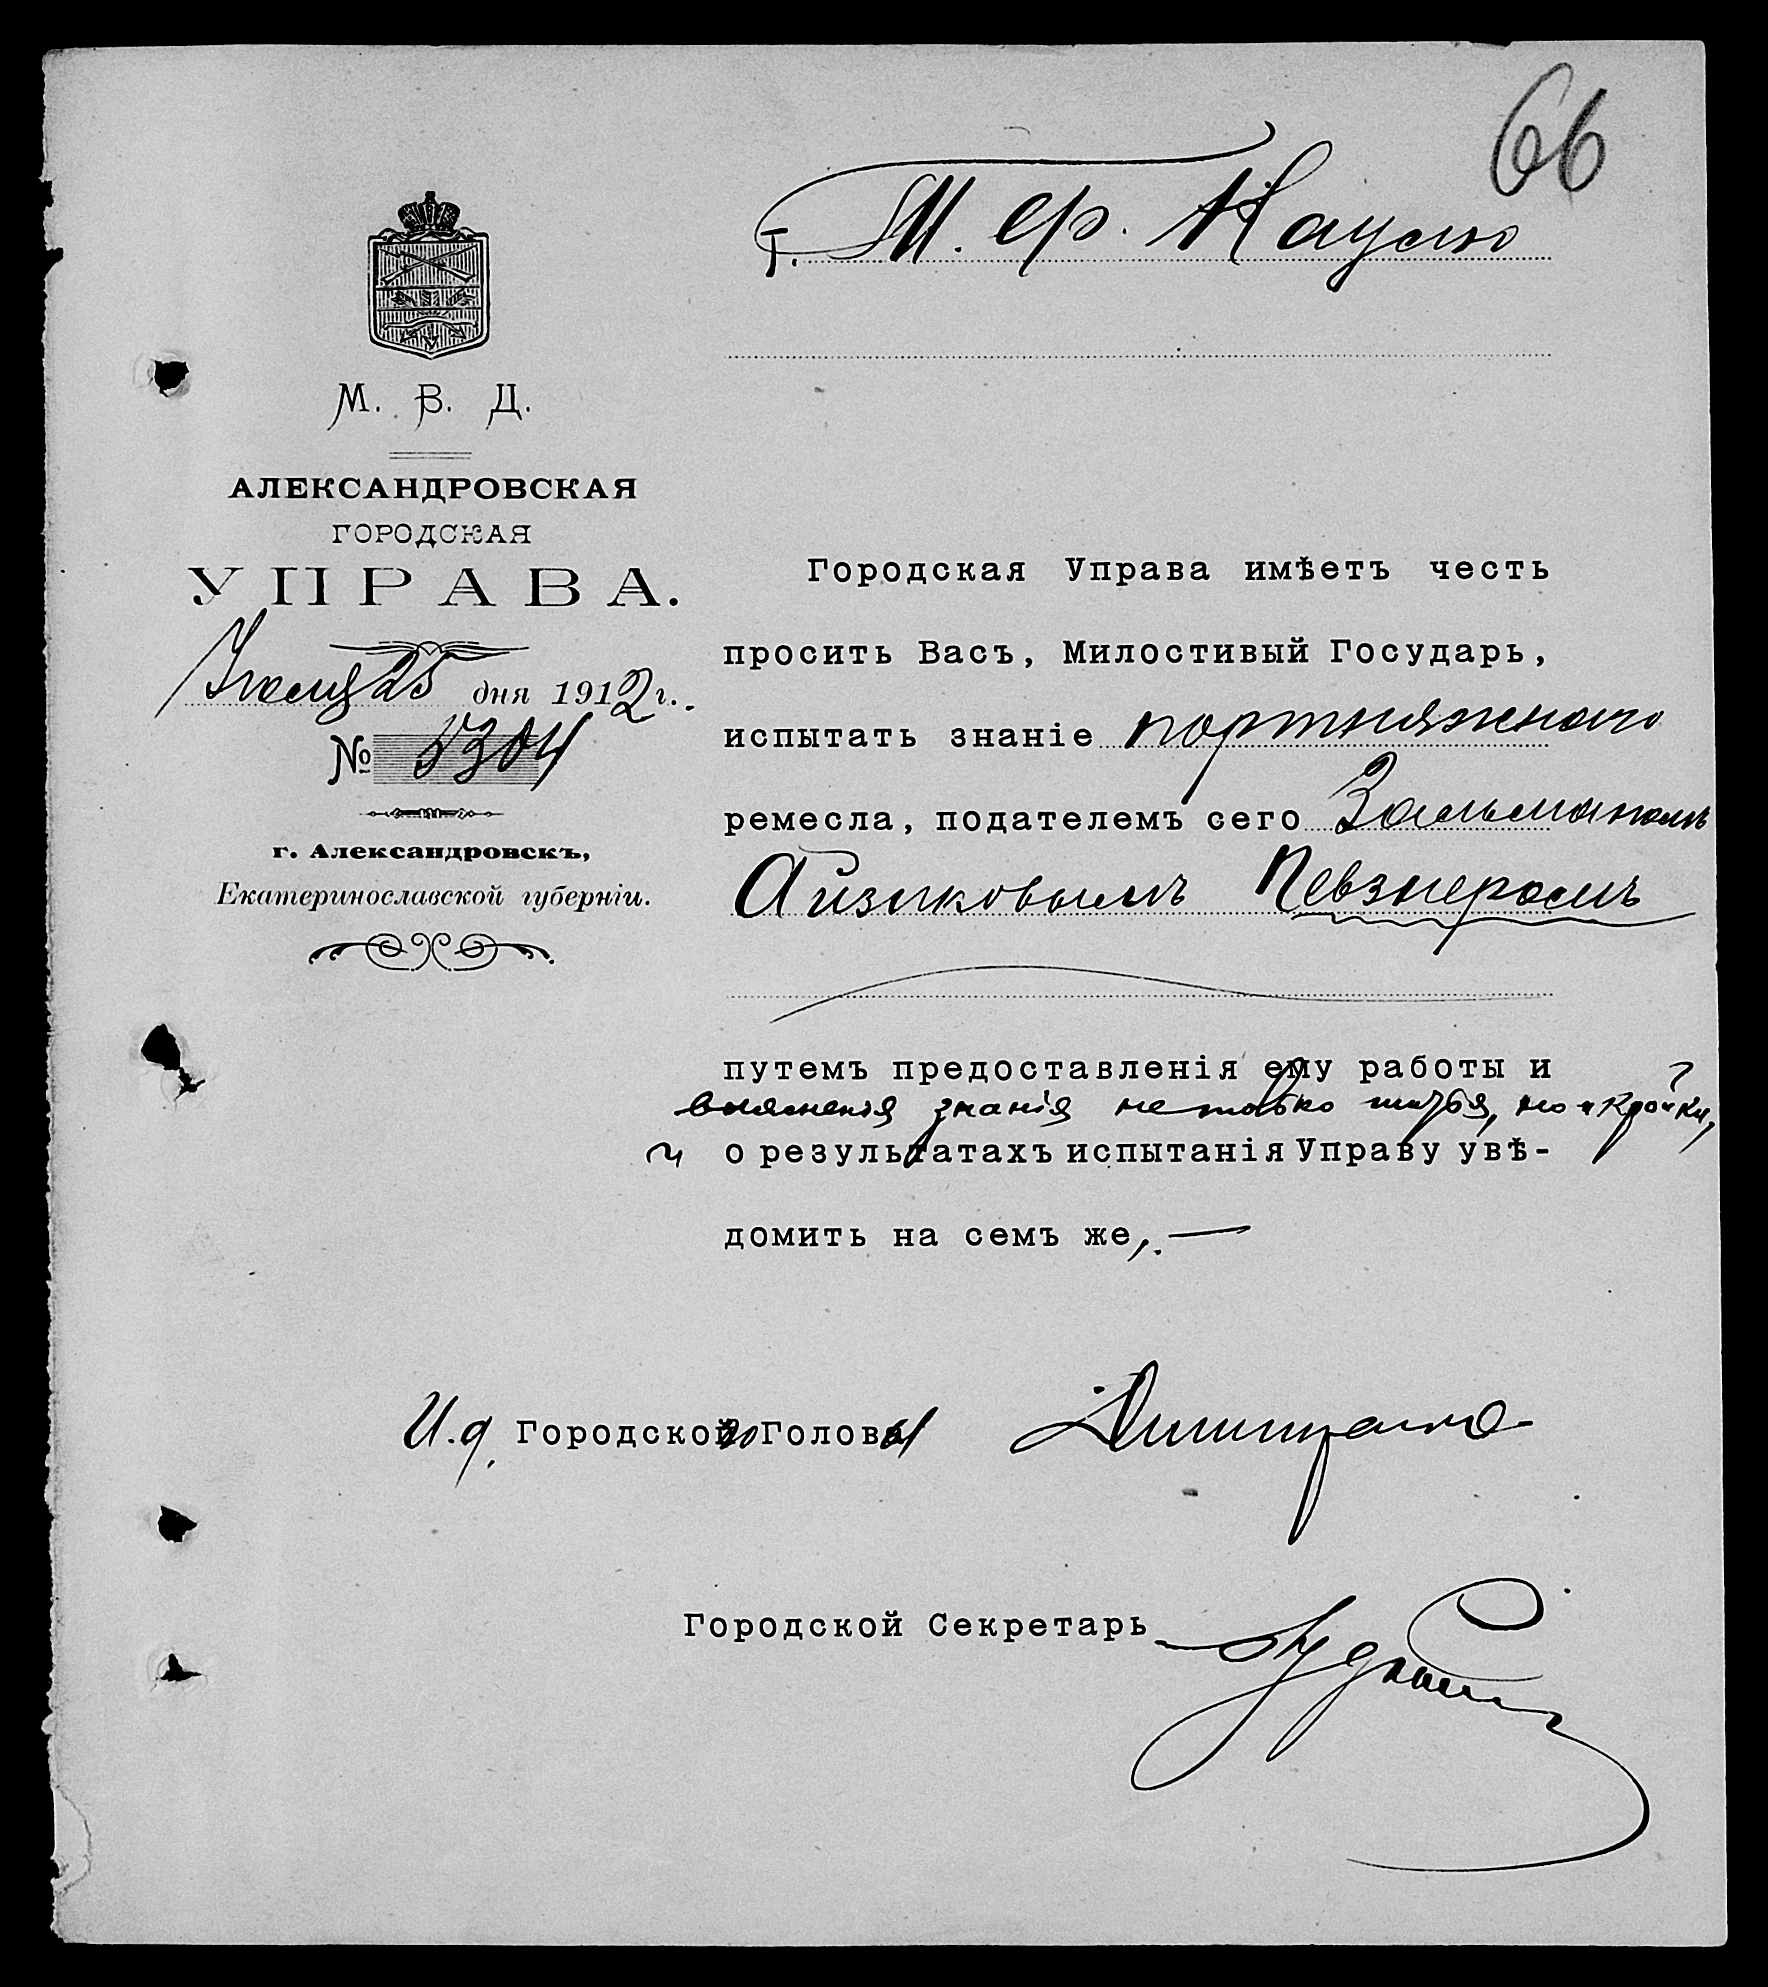 66
Г. М. Ф. Каусю
М. В. Д.
АЛЕКСАНДРОВСКАЯ
ГОРОДСКАЯ
УПРАВА.
Іюля 25 дня 1912 г.
№ 5304
г. Александровскъ,
Екатеринославской губерніи.
Городская Управа имѣетъ честь
просить Васъ, Милостивый Государь,
испытать знаніе портняжнаго
ремесла, подателемъ сего Зальманомъ
Айзиковымъ Певзнеромъ
путемъ предоставленія ему работы и
выясненія знанія не только шитья, но и кройки,
и о результатахъ испытанія Управу увѣ-
домить на семъ же,.—
И. д. Городского Головы
Городской Секретарь